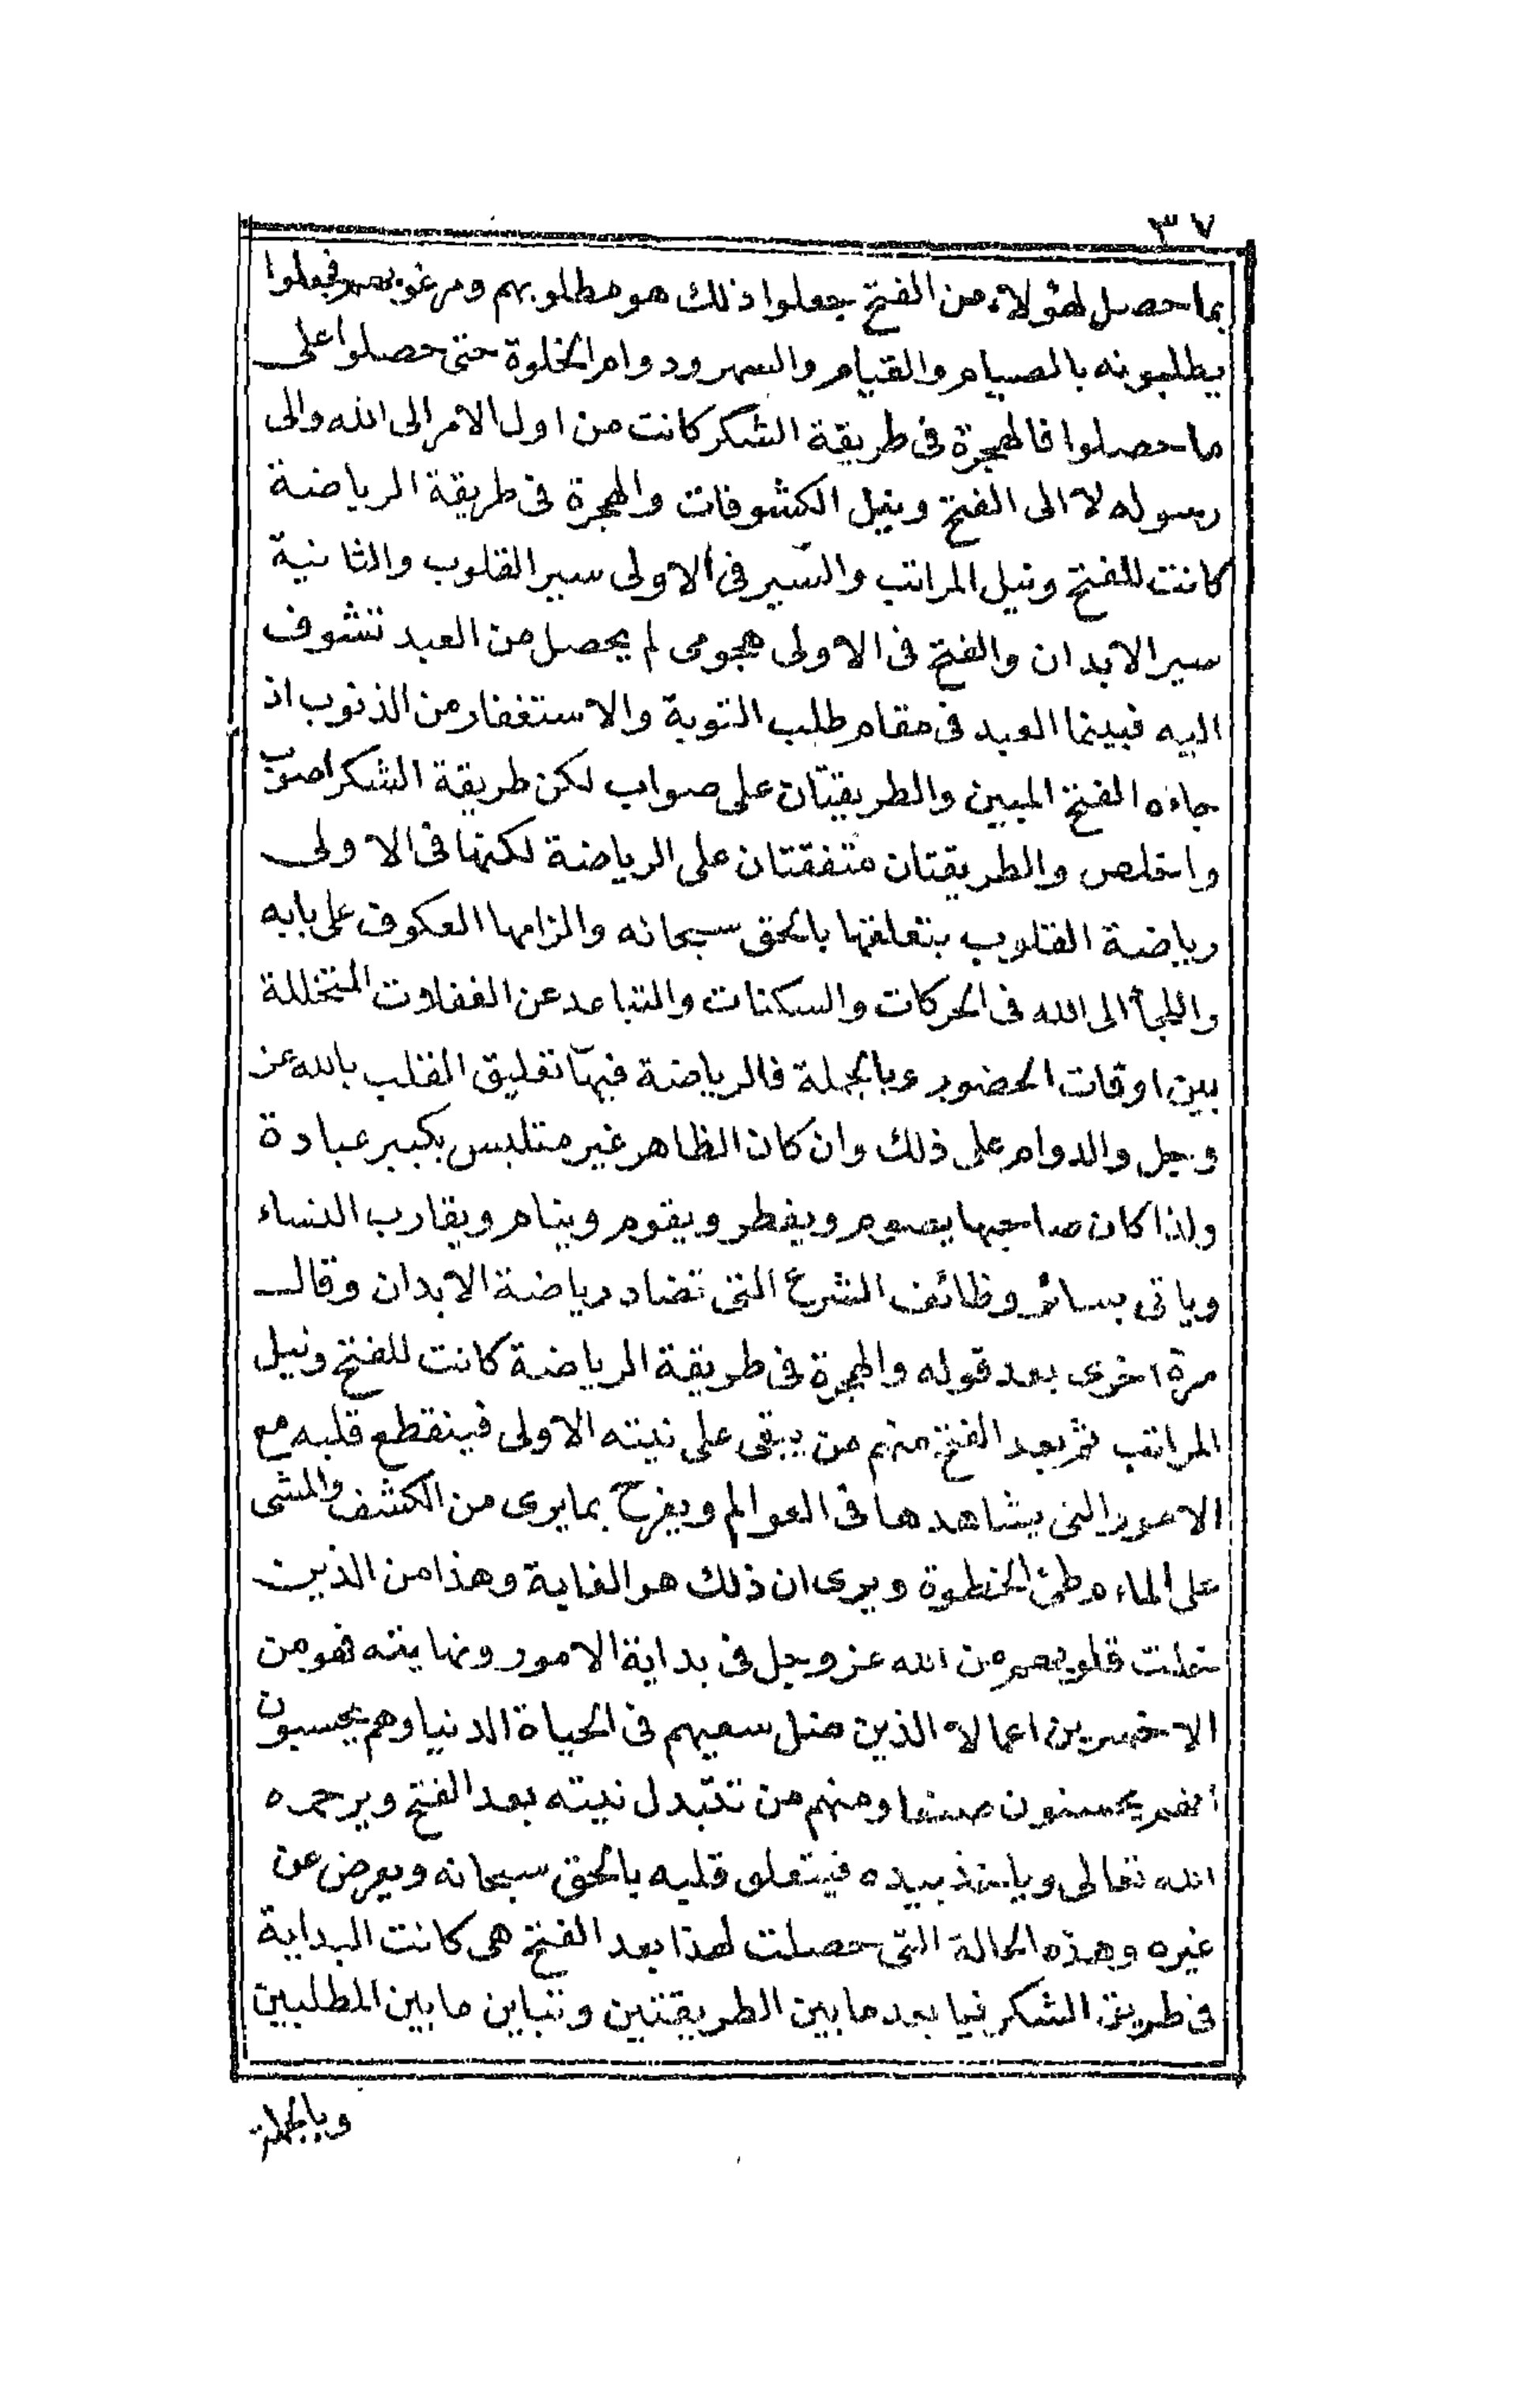 ٣٧
بما حصل لهؤلاء من الفتح جعلوا ذلك هو مطلوبهم ومرغوبهم فجعلوا
يطلبونه بالصيام والقيام والسهر ودوام الخلوة حتى حصلوا على
ما حصلوا فالهجرة فى طريقة الشكر كانت من اول الامر الى الله والى
رسوله لا الى الفتح ونيل الكشوفات والهجرة فى طريقة الرياضة
كانت للفتح ونيل المراتب والسير فى الاولى سير القلوب والثانية
سير الابدان والفتح فى الاولى هجومى لم يحصل من العبد تشوف
اليه فبينما العبد فى مقام طلب التوبة والاستغفار من الذنوب اذ
جاءه الفتح المبين والطريقتان على صواب لكن طريقة الشكر اصوب
واخلص والطريقتان متفقتان على الرياضة لكنها فى الاولى
رياضة القلوب بتعلقها بالحق سبحانه والزامها العكوف على بابه
واللجأ الى الله فى الحركات والسكنات والتباعد عن الغفلات المتخللة
بين اوقات الحضور وبالجملة فالرياضة فيها تعليق القلب بالله عز
وجل والدوام على ذلك وان كان الظاهر غير متلبس بكبير عبادة
ولذا كان صاحبها يصوم ويفطر ويقوم وينام ويقارب النساء
وياتى بسائر وظائف الشرع التى تضاد رياضة الابدان وقال
مرة اخرى بعد قوله والهجرة فى طريقة الرياضة كانت للفتح ونيل
المراتب ثم بعد الفتح منهم من يبقى على نيته الاولى فينقطع قلبه مع
الامور التى يشاهدها فى العوالم ويفرح بما يرى من الكشف والمشى
على الماء وطى الخطوة ويرى ان ذلك هو الغاية وهذا من الذين
خلت قلوبهم من الله عز وجل فى بداية الامور ونهايته فهو من
الاخسرين اعمالا الذين ضل سعيهم فى الحياة الدنيا وهم يحسبون
انهم يحسنون صنعا ومنهم من تتبدل نيته بعد الفتح ويرحمه
الله تعالى وياخذ بيده فيتعلق قلبه بالحق سبحانه ويعرض عن
غيره وهذه الحالة التى حصلت لهذا بعد الفتح هى كانت البداية
فى طريق الشكر فيا بعد ما بين الطريقتين وتباين ما بين المطلبين
وبالجملة